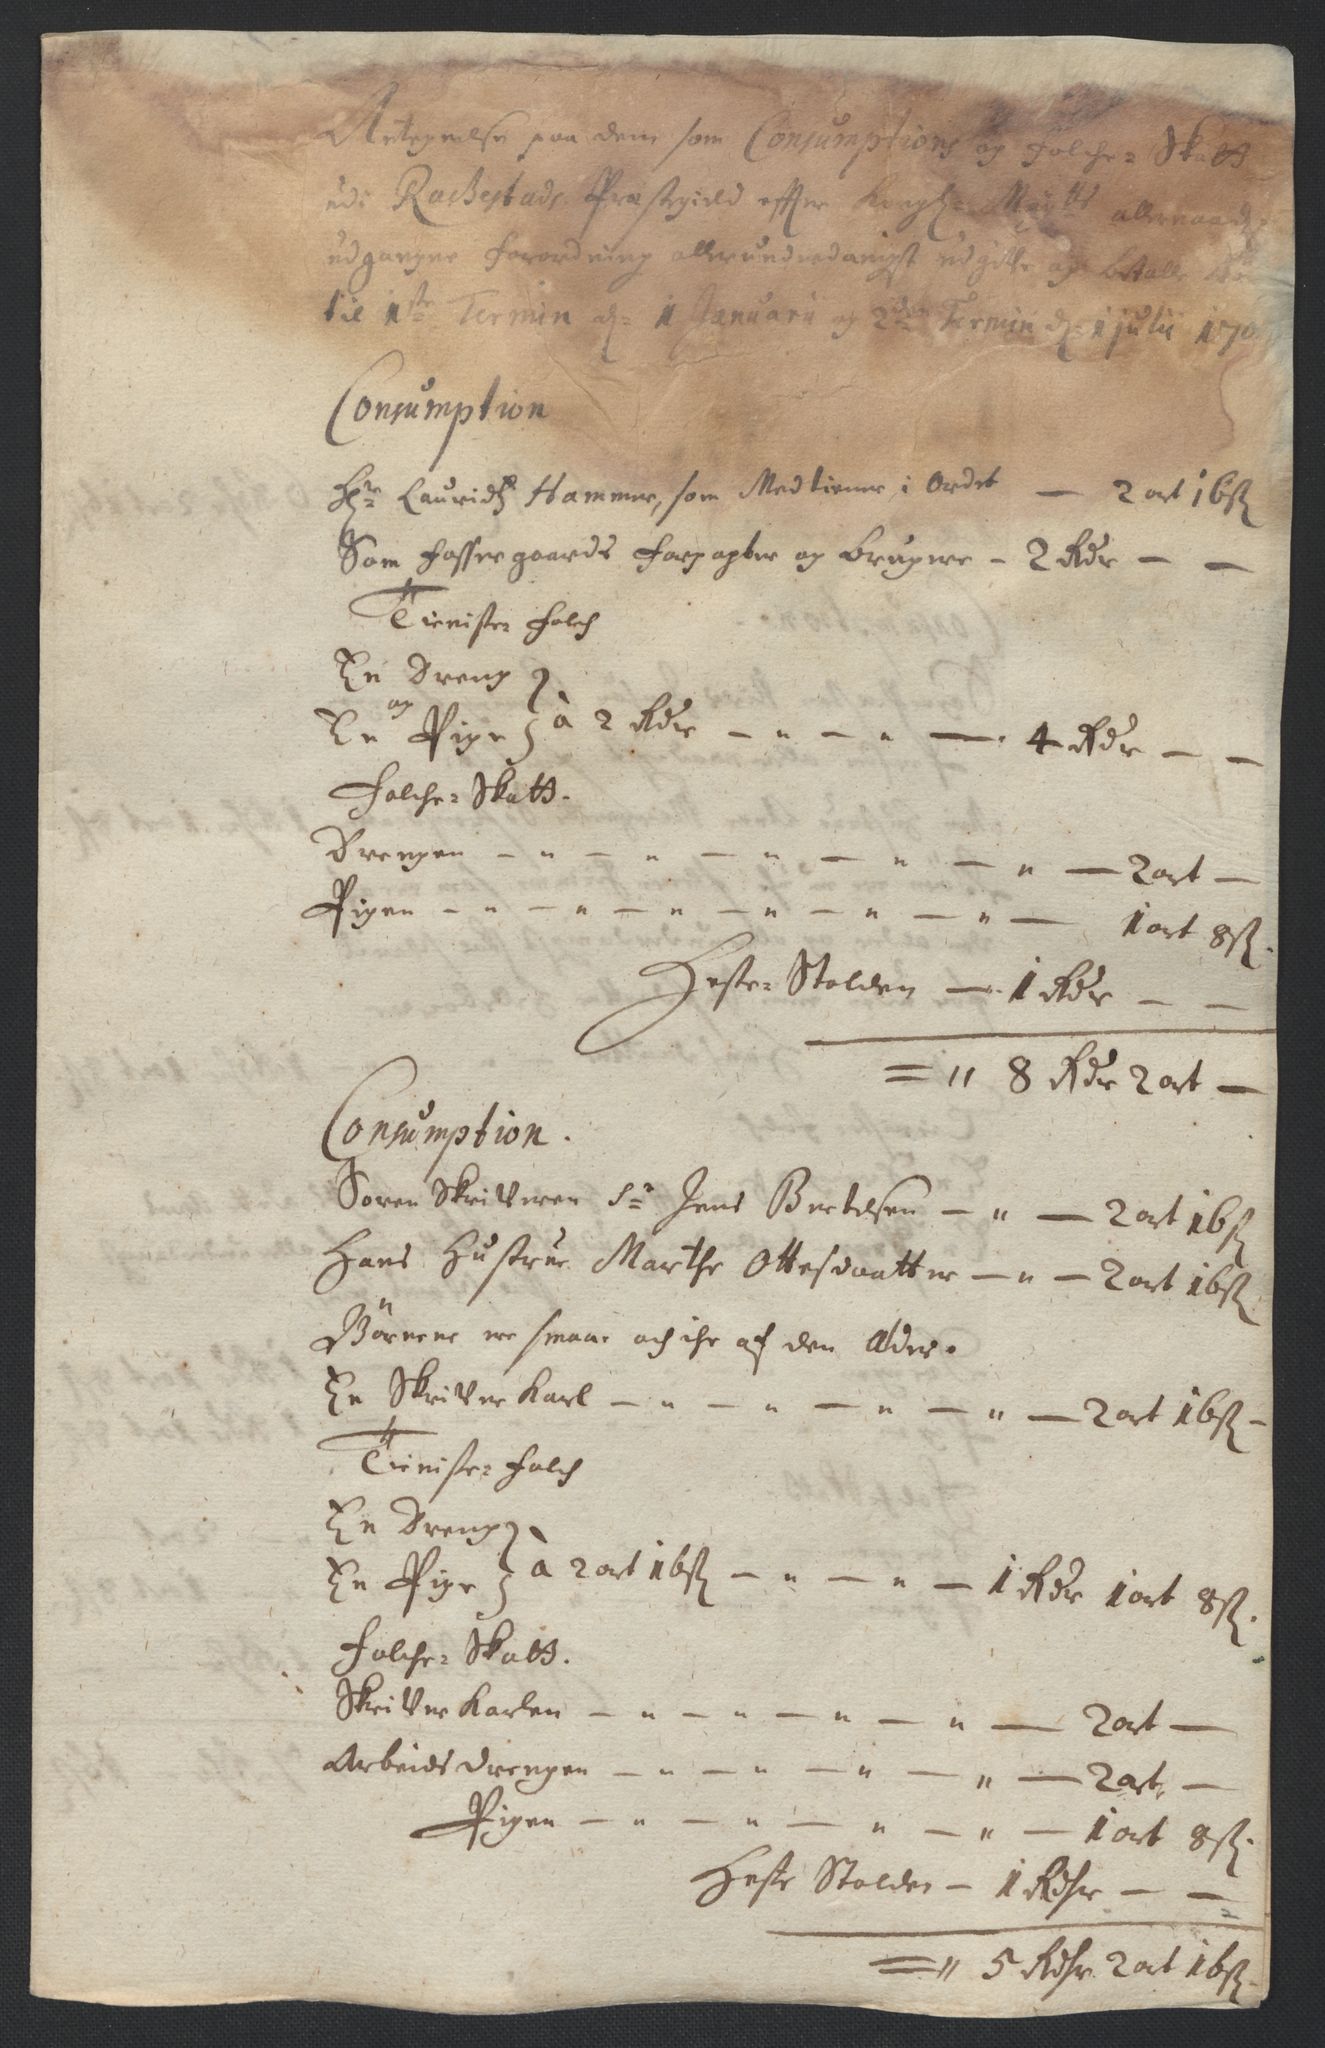 Antegnelse paa dem som Consumptions og Folche-Skatt
udi Rachestads Præstegield effter Kongl: Maytts allernaadgst
udgangne forordning allerunderdanigst udgifve og betalle
til 1ste Termin d: 1 Januarii og 2den Termin d: 1 Julii 170
Consumption
Hr Lauridtz Hammer, som Medtiener i Ordet — 2 ort 16 ß
Som fossergaards forpagter og bruger — 2 Rdr — —
Tieniste folch
En Dreng
og
En Pige } à 2 Rdr — " — " — 4 Rdr — —
Folche-Skatt.
Drengen — " — " — " — " — " — 2 ort —
Pigen — " — " — " — " — " — 1 ort 8 ß.
Heste-Stalden — 1 Rdr — —
= " 8 Rdr 2 ort —
Consumption.
Soren Skrifveren Sr Jens Bertelsen — " — 2 ort 16 ß
Hans Hustrue Marthe Ottesdaatter — " — 2 ort 16 ß
Börnene er smaae och ihe af den Alder.
En Skrifver Karl — " — " — " — " — 2 ort 16 ß —
Tieniste folch
En Dreng
En Pige } à 2 ort 16 ß — " — " — 1 Rdr 1 ort 8 ß.
Folche-Skatt.
Skrifver Karlen — " — " — " — " — 2 ort —
Arbeids drengen — " — " — " — " — 2 ort —
Pigen — " — " — " — " — 1 ort 8 ß.
Heste Stalden — 1 Rdr — —
= " 5 Rdr 2 ort 16 ß